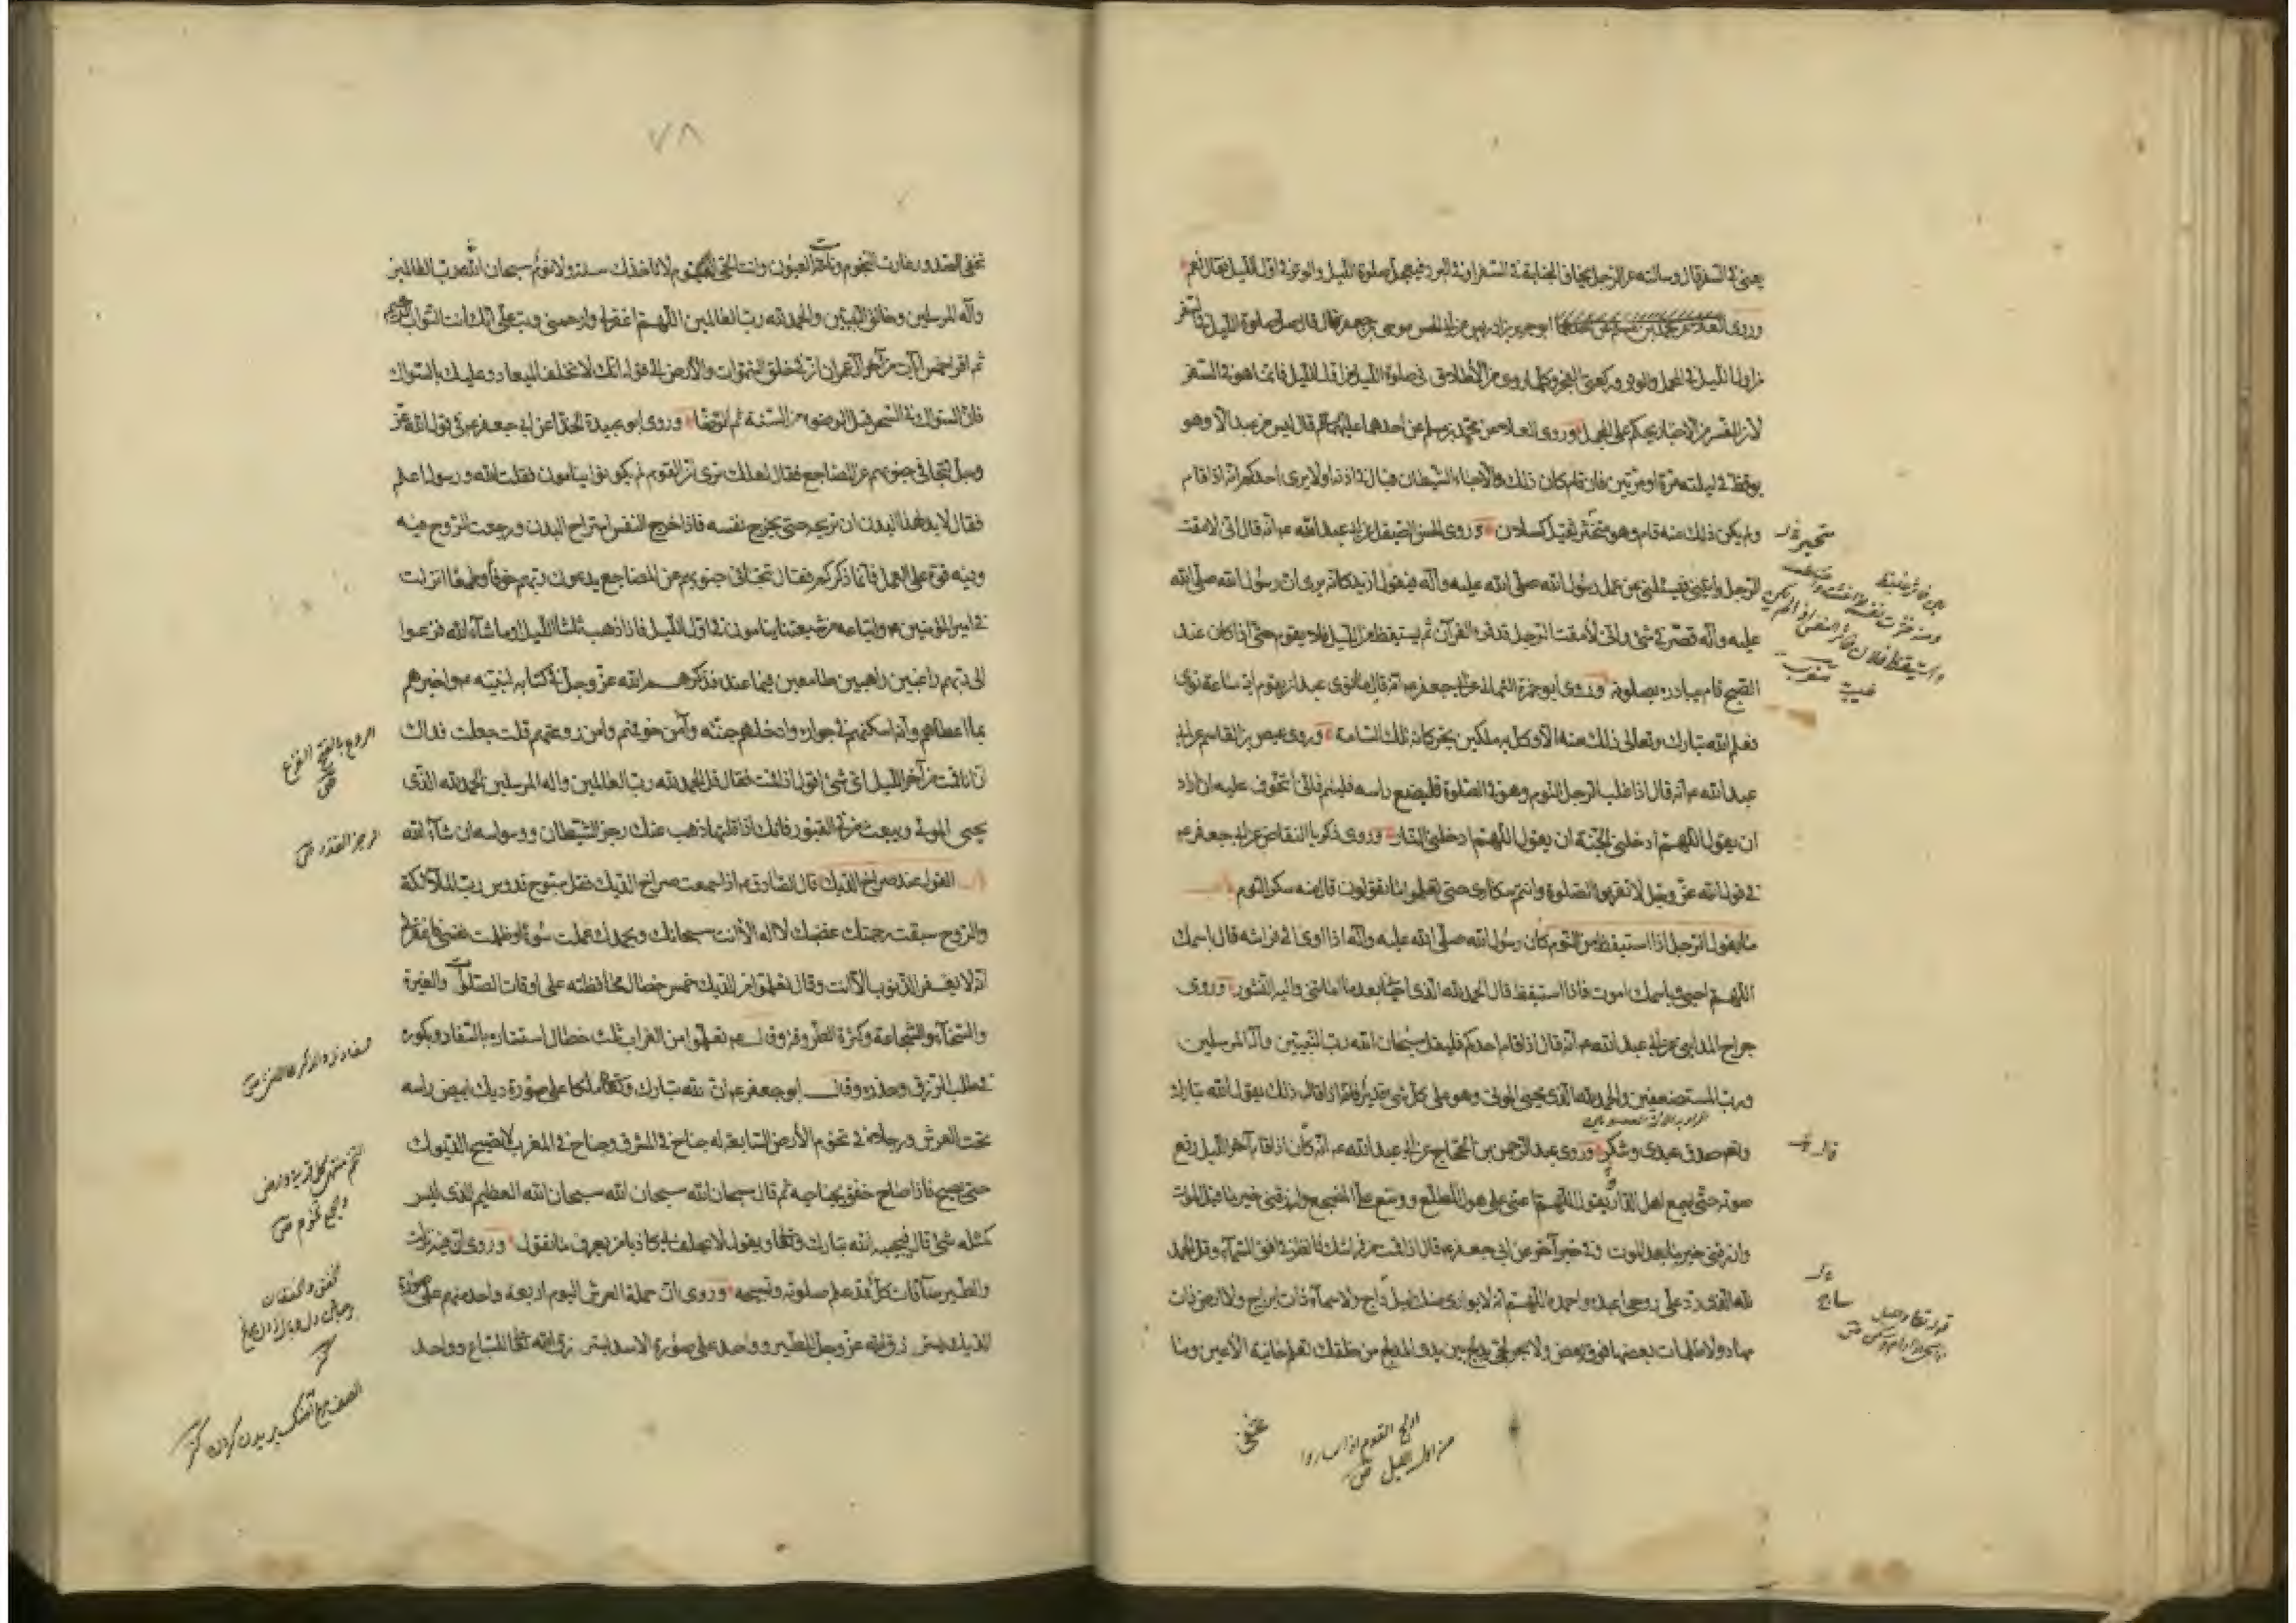 يعنى فى السفر قال وسالته عن الرجل يخاف الجنابة فى السفر او فى البرد فيعجل صلوة الليل والوتر فى اول الليل فقال نعم
وروى ابو جرير بن ادريس عن ابى الحسن موسى بن جعفر قال قال صل صلوة الليل فى السفر
من اول الليل فى المحمل والوتر وركعتى الفجر وكلما روى من الاطلاق فى صلوة الليل من اول الليل فانما هو فى السفر
لان المفسر من الاخبار يحكم على المجمل وروى العلا عن محمد بن مسلم عن احدهما عليهما قال ليس من عبد الا وهو
يوقظ فى ليلته مرة او مرتين فان قام كان ذلك والا جاء الشيطان فبال فى اذنه اولا يرى احدكم انه اذا قام
ولم يكن ذلك منه قام وهو متخثر ثقيل كسلان وروى الحسن الصيقل عن ابى عبد الله عم انه قال انى لامقت
الرجل ياتينى فيسئلنى عن عمل رسول الله صلى الله عليه وآله فيقول ازيد كانه يرى ان رسول الله صلى الله
عليه وآله قصر فى شئ وانى لامقت الرجل قد قرء القرآن ثم يستيقظ من الليل فلا يقوم حتى اذا كان عند
الصبح قام يبادره بصلوته وروى ابو حمزة الثمالى عن ابى جعفر عم انه قال ما نوى عبد ان يقوم اية ساعة نوى
فعلم الله تبارك وتعالى ذلك منه الا وكل به ملكين يحركانه تلك الساعة وروى عيص بن القاسم عن ابى
عبد الله عم انه قال اذا غلب الرجل النوم وهو فى الصلوة فليضع راسه فلينم فانى اتخوف عليه ان اراد
ان يقول اللهم ادخلنى الجنة ان يقول اللهم ادخلنى النار وروى زكريا النقاض عن ابى جعفر عم
فى قول الله عز وجل لا تقربوا الصلوة وانتم سكارى حتى تعلموا ما تقولون قال منه سكر النوم
ما يقول الرجل اذا استيقظ من النوم كان رسول الله صلى الله عليه وآله اذا اوى الى فراشه قال باسمك
اللهم احيى وباسمك اموت فاذا استيقظ قال الحمد لله الذى احيانى بعد ما اماتنى واليه النشور وروى
جراح المداينى عن ابى عبد الله عم انه قال اذا قام احدكم فليقل سبحان الله رب النبيين وآله المرسلين
ورب المستضعفين والحمد لله الذى يحيى الموتى وهو على كل شئ قدير فانه اذا قال ذلك يقول الله تبارك
وتعم صدق عبدى وشكر وروى عبد الرحمن بن الحجاج عن ابى عبد الله عم انه كان اذا قام آخر الليل رفع
صوته حتى يسمع اهل الدار يقول اللهم اعنى على هول المطلع ووسع على المضجع وارزقنى خير ما قبل الموت
وارزقنى خير ما بعد الموت وفى خبر آخر عن ابى جعفر عم قال اذا قمت من فراشك فانظر فى افق السماء وقل الحمد
لله الذى رد على روحى اعبده واحمده اللهم انه لا يوارى منك ليل داج ولا سماء ذات ابراج ولا ارض ذات
مهاد ولا ظلمات بعضها فوق بعض ولا بحر لجى يدلج بين يدى المدلج من خلقك تعلم خائنة الاعين وما
متحير
قال
ساج
ادلج القوم اذا ساروا
من اول الليل ص
تخفى
٧٨
تخفى الصدور غارت النجوم ونامت العيون وانت الحى القيوم لا تاخذك سنة ولا نوم سبحان الله رب العالمين
وآله المرسلين وخالق النبيين والحمد لله رب العالمين اللهم اغفر لى وارحمنى وتب على انك انت التواب الرحيم
ثم اقرء خمس آيات من آخر آل عمران ان فى خلق السموات والارض الى قوله انك لا تخلف الميعاد وعليك بالسواك
فان السواك فى السحر قبل الوضوء من السنة ثم توضا وروى ابو عبيدة الحذا عن ابى جعفر عم فى قول الله عز
وجل تتجافى جنوبهم عن المضاجع فقال لعلك ترى ان القوم لم يكونوا ينامون فقلت الله ورسوله اعلم
فقال لا بد لهذا البدن ان تريحه حتى يخرج نفسه فاذا خرج النفس استراح البدن ورجعت الروح فيه
وفيه قوة على العمل فانما ذكركم فقال تتجافى جنوبهم عن المضاجع يدعون ربهم خوفا وطمعا انزلت
فى امير المؤمنين عم واتباعه من شيعتنا ينامون فى اول الليل فاذا ذهب ثلثا الليل او ما شآء الله فزعوا
الى ربهم راغبين راهبين طامعين فيما عنده فذكرهم الله عز وجل فى كتابه لنبيه عم واخبرهم
بما اعطاهم وانه اسكنهم فى جواره وادخلهم جنته وآمن خوفهم وامن روعتهم قلت جعلت فداك
ان انا قمت من آخر الليل اى شئ اقول اذا قمت فقال قل الحمد لله رب العالمين واله المرسلين الحمد لله الذى
يحيى الموتى ويبعث من فى القبور فانك اذا قلتها ذهب عنك رجز الشيطان ووسواسه ان شآء الله
القول عند صراخ الديك قال الصادق عم اذا سمعت صراخ الديك فقل سبوح قدوس رب الملآئكة
والروح سبقت رحمتك غضبك لا اله الا انت سبحانك وبحمدك عملت سوءا وظلمت نفسى فاغفر لى
انه لا يغفر الذنوب الا انت وقال تعلموا من الديك خمس خصال محافظته على اوقات الصلوات والغيرة
والسخآء والشجاعة وكثرة الطروقة وقال عم تعلموا من الغراب ثلث خصال استتاره بالسفاد وبكوره
فى طلب الرزق وحذره وقال ابو جعفر عم ان لله تبارك وتعالى ملكا على صورة ديك ابيض راسه
تحت العرش ورجلاه فى تخوم الارض السابعة له جناح فى المشرق وجناح فى المغرب لا تصيح الديوك
حتى يصيح فاذا صاح خفق بجناحيه ثم قال سبحان الله سبحان الله سبحان الله العظيم الذى ليس
كمثله شئ قال فيجيبه الله تبارك وتعالى ويقول لا يحلف بى كاذبا من يعرف ما تقول وروى ان فيه نزلت
والطير صآفات كل قد علم صلوته وتسبيحه وروى ان حملة العرش اليوم اربعة واحد منهم على صورة
الديك يسترزق الله عز وجل للطير وواحد على صورة الاسد يسترزق الله تعالى للسباع وواحد
الروع بالفتح الفزع
الرجز القذر ص
وجمع تخوم ص